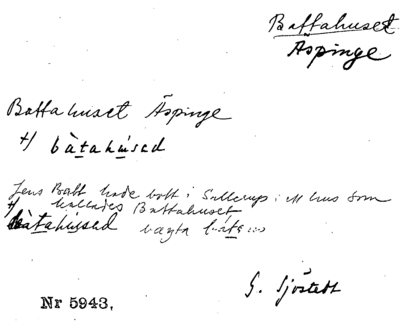 Battahuset
Äspinge
Battahuset Äspinge
bàtahúsed
Jens Batt hade bott i Sallerup i ett hus som
kallades Battahuset
bàtahúsed
G. Sjöstedt
Nr 5943.